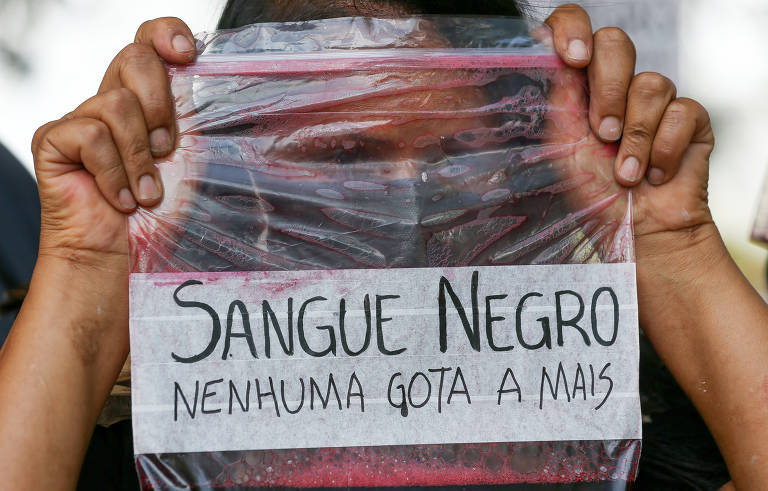 SANGUE NEGRO
NENHUMA GOTA A MAIS